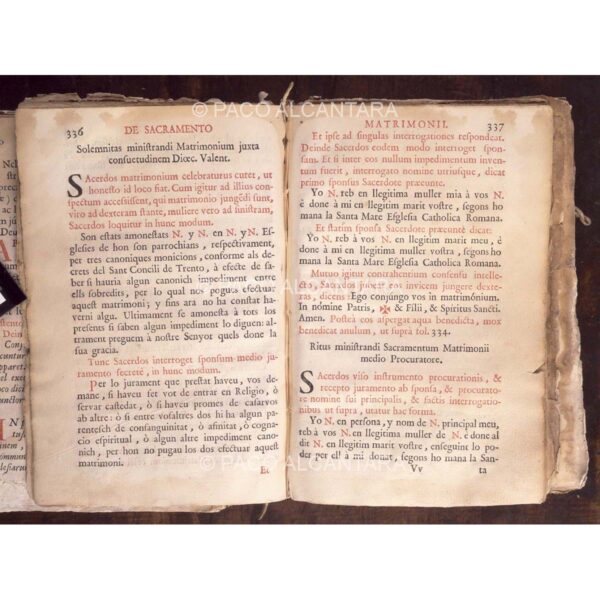 © PACO ALCANTARA
336
DE SACRAMENTO
Solemnitas ministrandi Matrimonium juxta
consuetudinem Diœc. Valent.
SAcerdos matrimonium celebraturus curet, ut
honesto id loco fiat. Cum igitur ad illius con-
spectum accessissent, qui matrimonio jungēdi sunt,
viro ad dexteram stante, muliere vero ad sinistram,
Sacerdos loquitur in hunc modum.
Son estats amonestats N. y N. en N. y N. Es-
glesies de hon son parrochians, respectivament,
per tres canoniques monicions, conforme als de-
crets del Sant Concili de Trento, à efecte de sa-
ber si hauria algun canonich impediment entre
ells sobredits, per lo qual nos pogues efectuar
aquest matrimoni; y fins ara no ha constat ha-
verni alga. Ultimament se amonesta à tots los
presents si saben algun impediment lo diguen: al-
trament preguem à nostre Senyor quels done la
sua gracia.
Tunc Sacerdos interroget sponsum medio ju-
ramento secretè, in hunc modum.
Per lo jurament que prestat haveu, vos de-
mane, si haveu fet vot de entrar en Religio, ò
servar castedat, ò si haveu promes de casarvos
ab altre: ò si entre vosaltres dos hi ha algun pa-
rentesch de consanguinitat, ò afinitat, ò cognac-
io espiritual, ò algun altre impediment cano-
nich, per hon no pugau los dos efectuar aquest
matrimoni.
Et
MATRIMONII.
337
Et ipse ad singulas interrogationes respondeat.
Deinde Sacerdos eodem modo interroget spon-
sam. Et si inter eos nullum impedimentum inven-
tum fuerit, interrogato nomine utriusque, dicat
primo sponsus Sacerdote præeunte.
Yo N. reb en llegitima muller mia à vos N.
è done à mi en llegitim marit vostre, segons ho
mana la Santa Mare Esglesia Catholica Romana.
Et statim sponsa Sacerdote præeunte dicat:
Yo N. reb à vos N. en llegitim marit meu, è
done à mi en llegitima muller vostra, segons ho
mana la Santa Mare Esglesia Catholica Romana.
Mutuo igitur contrahentium consensu intelle-
cto, Sacerdos jubeat eos invicem jungere dexte-
ras, dicens: Ego conjungo vos in matrimónium.
In nómine Patris, ✠ & Filii, & Spiritus Sancti.
Amen. Posteà eos aspergat aqua benedicta, mox
benedicat anulum, ut suprà fol. 334.
Ritus ministrandi Sacramentum Matrimonii
medio Procuratore.
SAcerdos viso instrumento procurationis, &
recepto juramento ab sponsa, & procurato-
re nomine sui principalis, & factis interrogatio-
nibus ut supra, utatur hac forma.
Yo N. en persona, y nom de N. principal meu,
reb à vos N. en llegitima muller de N. è done al
dit N. en llegitim marit vostre, enseguint lo po-
der per ell à mi donat, segons ho mana la San-
Vv
ta
© PACO ALCANTARA